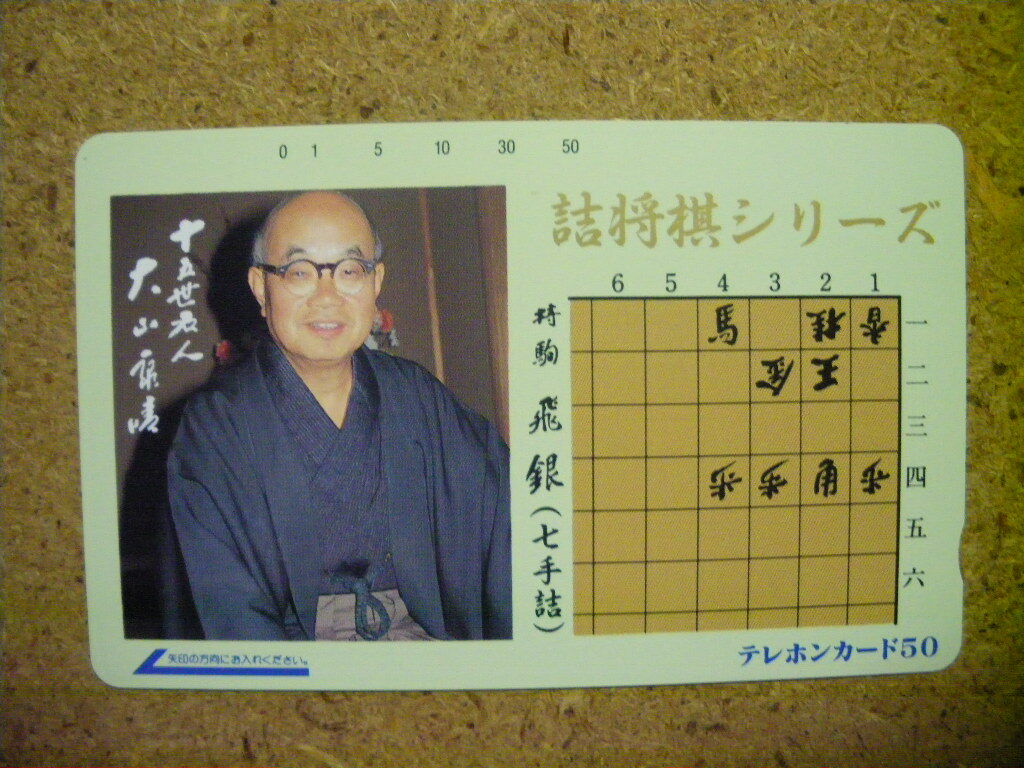 0 1 5 10 30 50
十五世名人
大山康晴
詰将棋シリーズ
持駒 飛 銀 (七手詰)
6 5 4 3 2 1
馬 桂 香 一
金 王 二
三
歩 歩 角 歩 四
五
六
矢印の方向にお入れください。
テレホンカード50